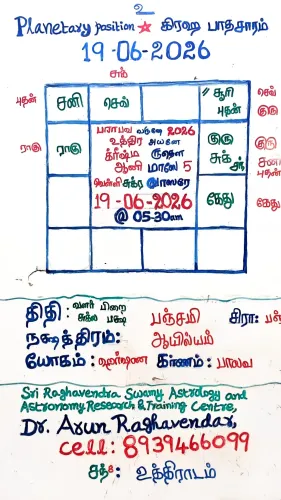 உ
Planetary position ★ கிரஹ பாதசாரம்
19-06-2026
சனி
செவ்
சூரி
புதன்
ராகு
குரு
சுக்
சந்
கேது
புதன்
ராகு
செவ்
குரு
குரு
சனி
புதன்
கேது
பராபவ வருஷ 2026
உத்திர அயனே
க்ரீஷ்ம ருதௌ
ஆனி மாஸ 5
வெள்ளி சுக்ர வாஸரே
19-06-2026
@ 05-30am
திதி: வளர் பிறை
சுக்ல பக்ஷ பஞ்சமி
நக்ஷத்திரம்: ஆயில்யம்
யோகம்: ஹர்ஷண கரணம்: பாலவ
Sri Raghavendra Swamy Astrology and
Astronomy Research & Training Centre,
Dr. Arun Raghavendar,
cell: 8939466099
சந்: உத்திராடம்